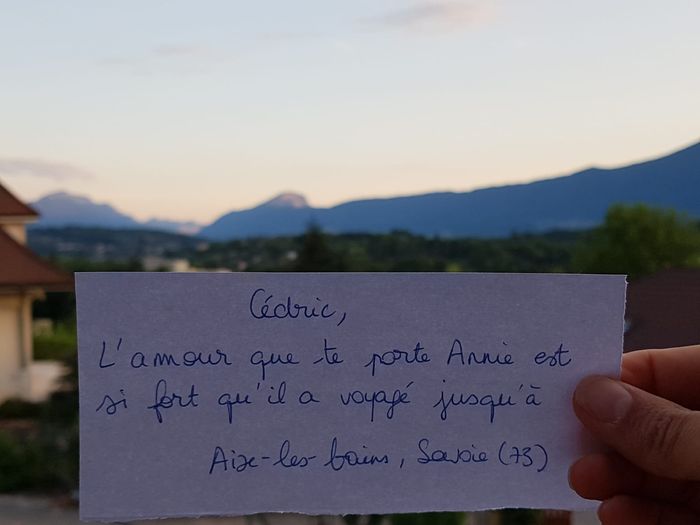 Cédric,
L'amour que te porte Annie est
si fort qu'il a voyagé jusqu'à
Aix-les-bains, Savoie (73)